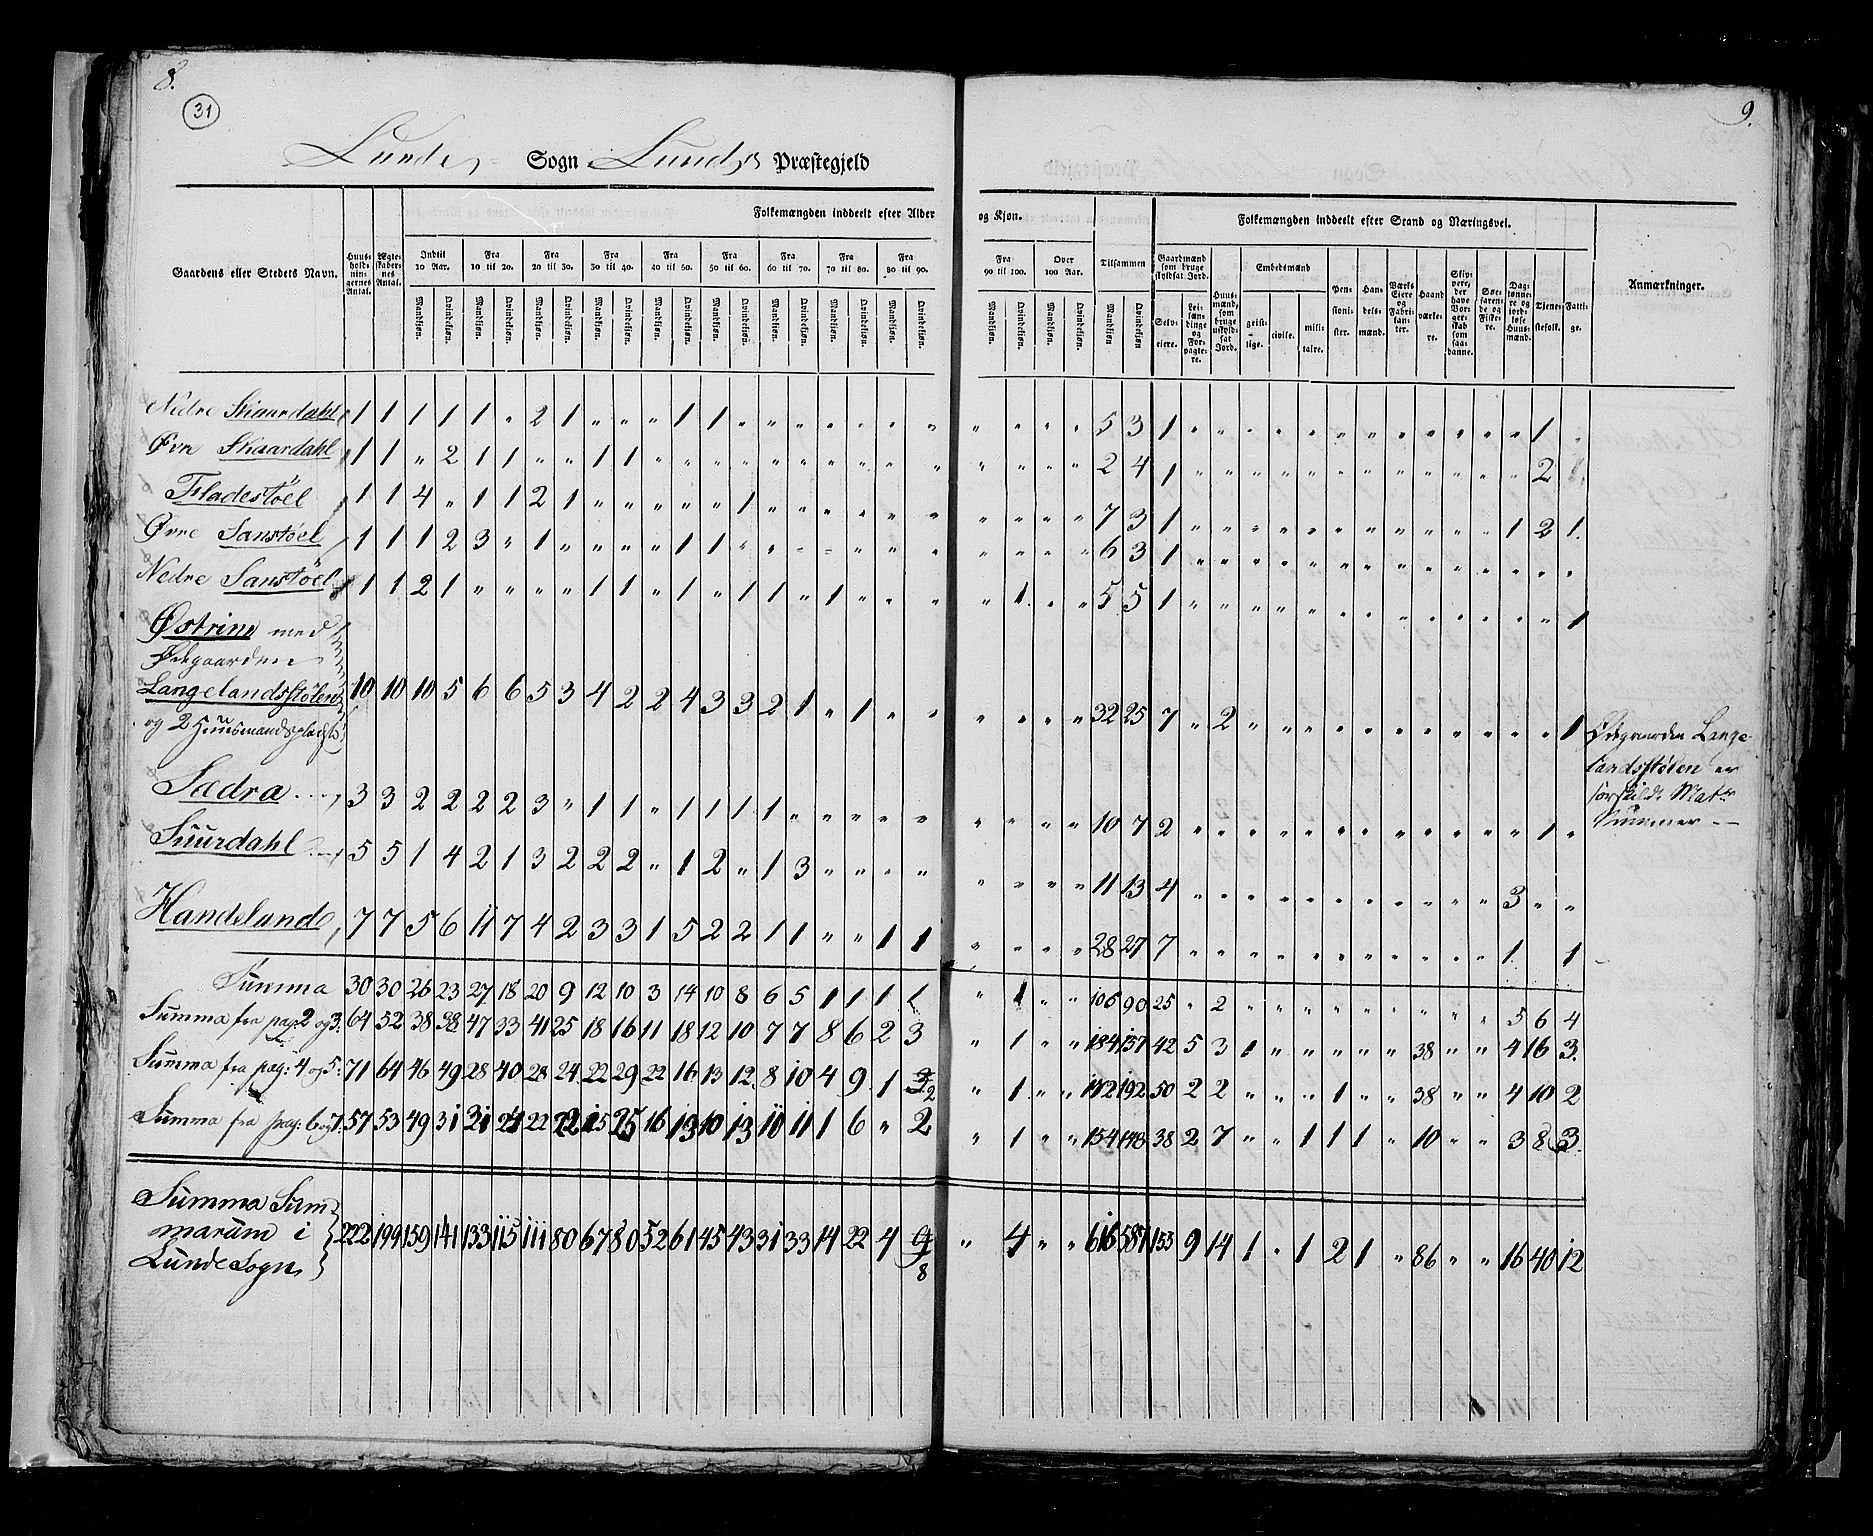 8.
9.
31
Lunde Sogn Lunds Præstegjeld
Gaardens eller Stedets Navn.
Huus-holdningernes Antal.
Ægteskabernes Antal.
Folkemængden inddeelt efter Alder og Kjøn.
Indtil 10 Aar. Fra 10 til 20. Fra 20 til 30. Fra 30 til 40. Fra 40 til 50. Fra 50 til 60. Fra 60 til 70. Fra 70 til 80. Fra 80 til 90. Fra 90 til 100. Over 100 Aar. Tilsammen
Mandkjøn. Qvindekjøn.
Folkemængden inddeelt efter Stand og Næringsvei.
Gaardmænd som bruge skyldsat Jord.
Selveiere.
Leilændinge og Forpagtere.
Huusmænd, som bruge uskyldsat Jord.
Embedsmænd
geistlige. civile. militaire.
Pensionister.
Handelsmænd.
Værks Eiere og Fabrikanter.
Haandværkere.
Skippere, der have Borgerskab som saadanne.
Søefarende og Fiskere.
Daglønnere og jordløse Huusmænd.
Tjenestefolk.
Fattige.
Anmærkninger.
Nedre Skaardahl 1 1 1 1 1 " 2 1 " " " 1 1 " " " " " " " " " " " 5 3 1 " " " " " " " " " " " " 1 "
Øvre Skaardahl 1 1 " 2 1 1 " " 1 1 " " " " " " " " " " " " " " 2 4 1 " " " " " " " " " " " " 2
Fladestøel 1 1 4 " 1 1 2 1 " " " " " 1 " " " " " " " " " " 7 3 1 " " " " " " " " " " " 1 2 1.
Øvre Sanstøel 1 1 1 2 3 " 1 " " " " 1 1 " " " " " " " " " " " 6 3 1 " " " " " " " " " " " " " "
Nedre Sanstøel 1 1 2 1 " " " " 1 1 " 1 " 1 1 " 1 " " " " 1 " " 5 5 1 " " " " " " " " " " " " " 1
Østrim med
Ødegaarden
Langelandsstølen 10 10 10 5 6 6 5 3 4 2 2 4 3 3 2 1 " 1 " " " " " " 32 25 7 " 2 " " " " " " " " " " " 1
og 2 Huusmandspladse
Ødegaarden Lange-
landsstølen er
særskildt Matr
Nummer
Sædra 3 3 2 2 2 2 3 " 1 1 " 1 1 1 1 " " " " " " " " " 10 7 2 " " " " " " " " " " " " 1 "
Suurdahl 5 5 1 4 2 1 3 2 2 2 " 1 2 " 1 3 " " " " " " " " 11 13 4 " " " " " " " " " " " 3 " "
Handeland 7 7 5 6 11 7 4 2 3 3 1 5 2 2 1 1 " " 1 1 " " " " 28 27 7 " " " " " " " " " " " 1 1
Summa 30 30 26 23 27 18 20 9 12 10 3 14 10 8 6 5 1 1 1 1 " 1 " " 106 90 25 " 2 " " " " " " " " " 5 6 4
Summa fra pag 2 og 3: 64 52 38 38 47 33 41 25 18 16 11 18 12 10 7 7 8 6 2 3 " 1 " " 184 157 42 5 3 1 " " " " " 38 " " 4 16 3.
Summa fra pag: 4 og 5: 71 64 46 49 28 40 28 24 22 29 22 16 13 12 8 10 4 9 1 2 " 1 " " 172 192 50 2 2 " " " 1 " " 38 " " 4 10 2
Summa fra pag: 6 og 7: 57 53 49 31 31 24 22 22 15 25 16 13 10 13 10 11 1 6 " 2 " 1 " " 154 148 38 2 7 " " 1 1 1 " 10 " " 3 8 3.
Summa Sum
marum i 222 199 159 141 133 115 111 80 67 80 52 61 45 43 31 33 14 22 4 8 " 4 " " 616 587 155 9 14 1 " 1 2 1 " 86 " " 16 40 12
Lunde Sogn